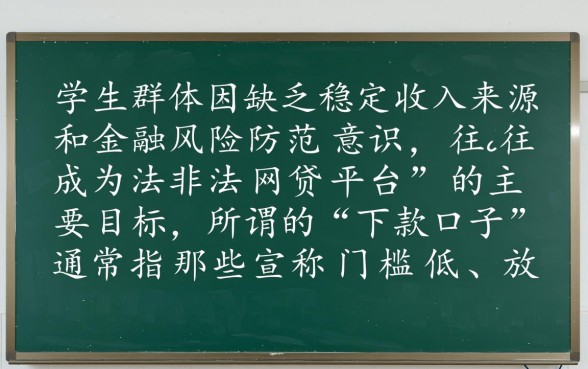 学生群体因缺乏稳定收入来源
和金融风险防范意识，往c往
成为法非法网贷平台”的主
要目标，所谓的“下款口子”
通常指那些宣称门槛低、放